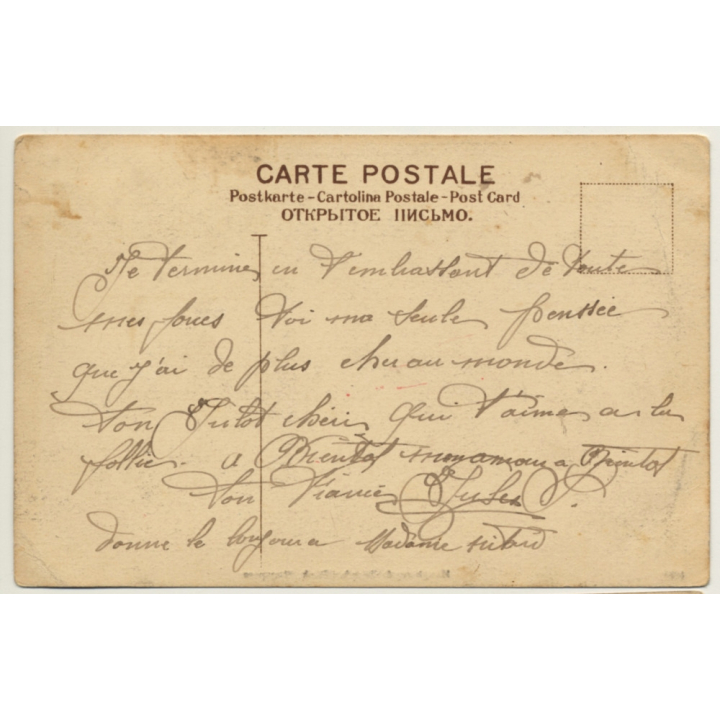 CARTE POSTALE
Postkarte - Cartolina Postale - Post Card
ОТКРЫТОЕ ПИСЬМО.
Je termine en t'embrassant de toute
mes forces toi ma seule penssée
que j'ai de plus cher au monde.
ton Julot chéri qui t'aime a la
follie. a Bientot mon amour a Bientot
ton Fiancé Jules P.
donne le bonjour a Madame